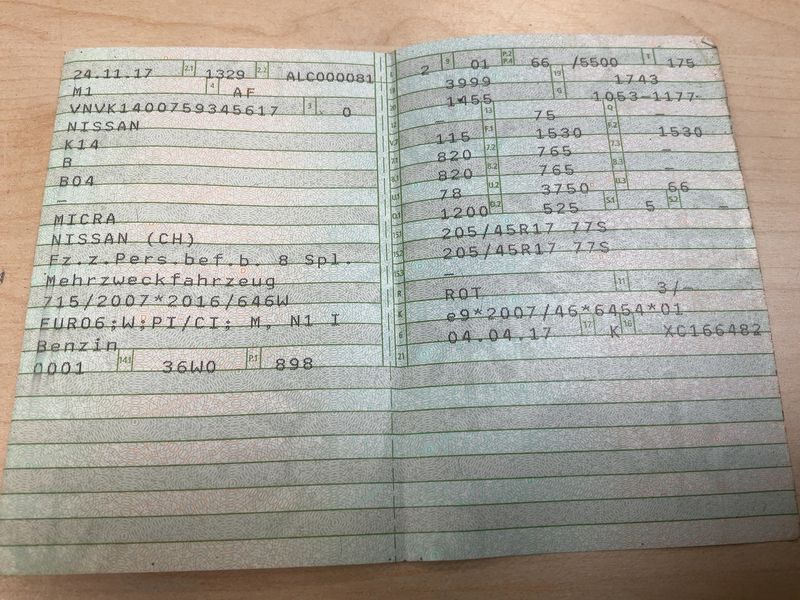 24.11.17 2.1 1329 2.2 ALC000081
M1 4 AF
VNVK1400759345617 3 0
NISSAN
K14
B
B04
—
MICRA
NISSAN (CH)
Fz.z.Pers.bef.b. 8 Spl.
Mehrzweckfahrzeug
715/2007*2016/646W
EURO6;W;PI/CI; M, N1 I
Benzin
0001 14.1 36W0 P.1 898
2 9 01 P.2 P.4 66 /5500 T 175
3999 19 1743
1455 G 1053-1177
— 13 75 Q —
115 F.1 1530 F.2 1530
820 7.2 765 7.3 —
820 8.2 765 8.3 —
78 U.2 3750 U.3 66
1200 O.2 525 S.1 5 S.2 —
205/45R17 77S
205/45R17 77S
—
R ROT 11 3/—
K e9*2007/46*6454*01
6 04.04.17 17 K 16 XC166482
21